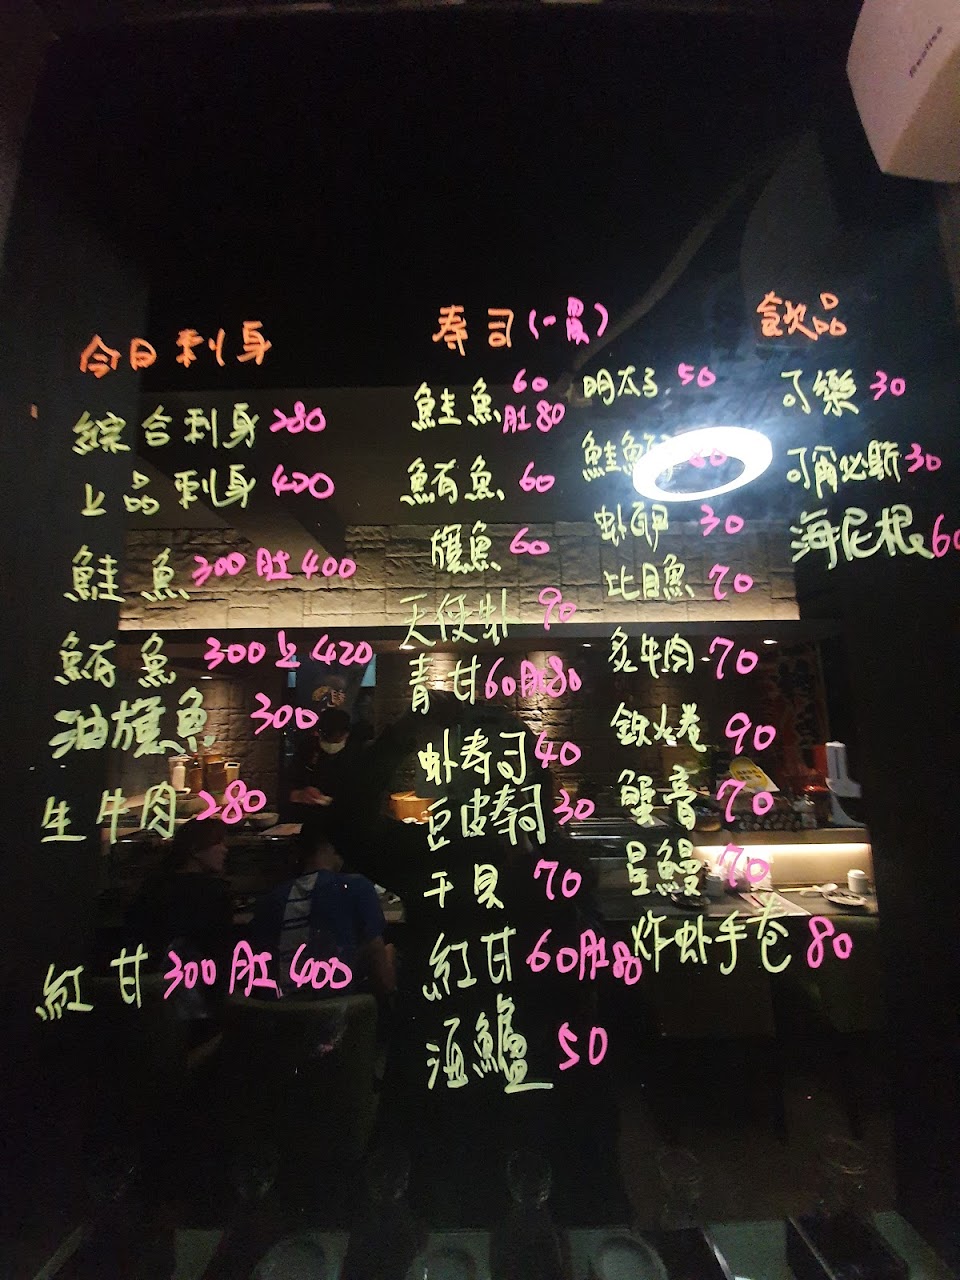 今日刺身
綜合刺身 280
上品刺身 420
鮭魚 300 肚 400
鮪魚 300 上 420
油旗魚 300
生牛肉 280
紅甘 300 肚 400
寿司(一貫)
鮭魚 60
肚 80
鮪魚 60
旗魚 60
天使虾 90
青甘 60 肚 80
虾寿司 40
豆皮寿司 30
干貝 70
紅甘 60 肚 80
海鱺 50
明太子 50
鮭魚
虾卵 30
比目魚 70
炙牛肉 70
鉄火卷 90
蟹膏 70
星鰻 70
炸虾手卷 80
飲品
可樂 30
可爾必斯 30
海尼根 60